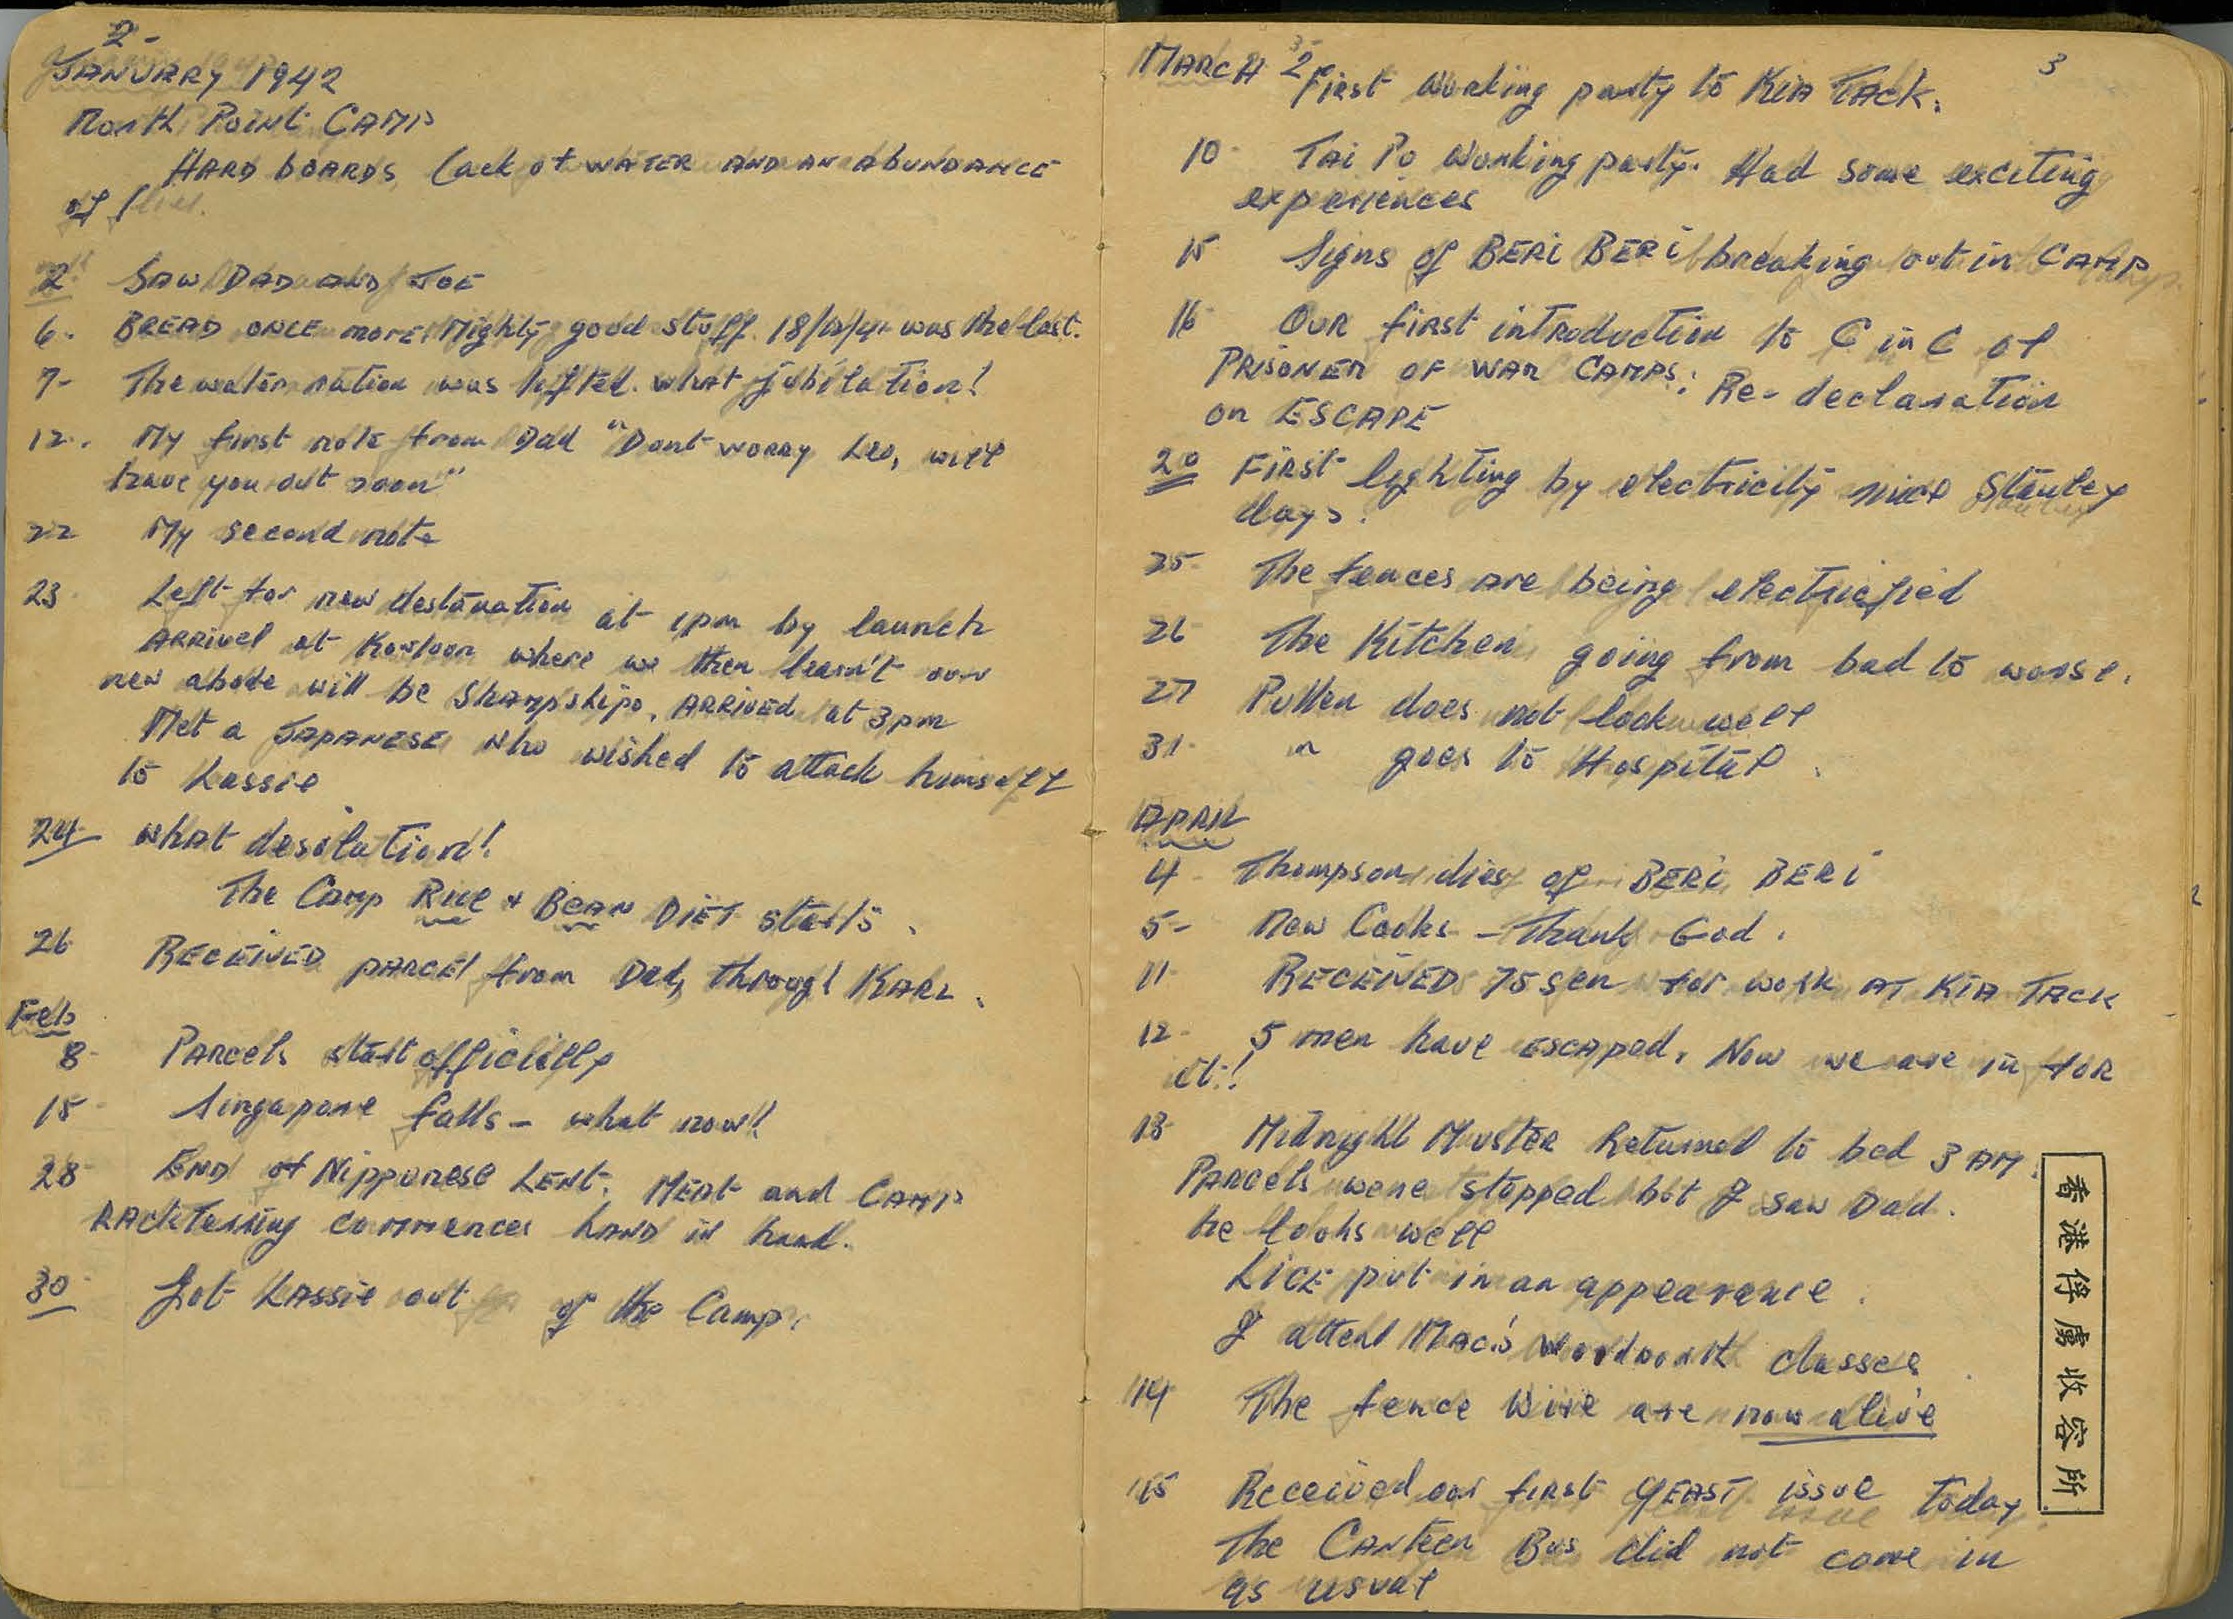 2-
JANUARY 1942
North Point CAMP
HARD bOARDS, lack of WATER AND AN ABUNDANCE
of flies.
2 SAW DAD AND JOE
6. BREAD ONCE more. Mighty good stuff. 18/12/41 was the last.
7- The water ration was lifted. what jubilation!
12. My first note from Dad "Dont worry Leo, will
have you out soon"
22 My second note
23. Left for new destination at 1pm by launch
ARRived at Kowloon where we then learn't our
new abode will be Shamshipo. ARRIVED at 3pm
Met a JAPANESE who wished to attach himself
to Lassie
24 what desolation!
The Camp Rice + BEAN DIET starts.
26 RECEIVED PARCEl from Dad, through KARL.
Feb
8- PARcels start officially
15- Singapore falls - what now!!
28- END of Nipponese LENT. MEAt and CAMP
RACkTeering commences hAND in hand.
30- Got LASSIE out of the Camp.
3
MARCH 2 First Working party to KIA TACK.
10- TAi Po Working party. Had some exciting
experiences
15 Signs of BERi BERi breaking out in CAMP
16- OUR first introduction to C in C of
PRISONER OF WAR CAMPS: Re-declaration
on ESCAPE
20 First lighting by electricity since Stanley
days.
25- The fences are being electriefied
26- The Kitchen going from bad to worse.
27 Pullen does not look well
31- " goes to Hospital.
APRIL
4- Thompson dies of BERi BERi
5- New Cooks - Thank God.
11- RECEIVED 75 sen for work AT KiA TACK
12- 5 men have ESCAped. Now we are in for
it!
13- Midnight MUSTER Returned to bed 3 AM.
PARcels were stopped but I saw Dad.
he looks well
LiCE put in an appearance.
I attend MAC's Wordworth classes
14 The fence Wire are now alive
15 Received our first YEAST issue today
The CANteen Bus did not come in
as usual
香港俘虜收容所